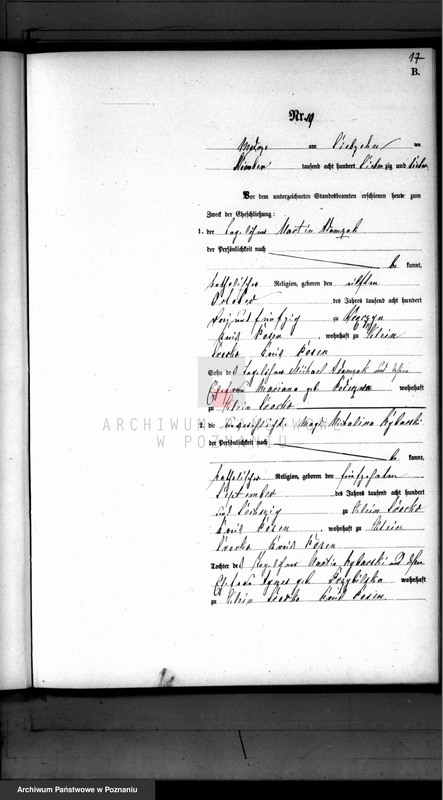 17
B.
Nr. 19
am siebzehnten
November tausend acht hundert siebenzig und sieben
Vor dem unterzeichneten Standesbeamten erschienen heute zum
Zweck der Eheschließung:
1. der Tagelöhner Martin Adamczak
der Persönlichkeit nach
be kannt,
katholischer Religion, geboren den elften
October des Jahres tausend acht hundert
drei und fünfzig zu
Kreis Posen wohnhaft zu Klein
Kreis Posen
Sohn des Tagelöhner Michael Adamczak und dessen
Ehefrau Mariana geb. wohnhaft
zu Klein
ARCHIWUM PAŃSTWOWE
W POZNANIU
2. die unverehelichte Magd Michalina Rybarski
der Persönlichkeit nach
be kannt,
katholischer Religion, geboren den fünfzehnten
September des Jahres tausend acht hundert
und sechszig zu Klein
Kreis Posen, wohnhaft zu Klein
Kreis Posen
Tochter des Tagelöhner Martin Rybarski und dessen
Ehefrau Agnes geb. wohnhaft
zu Klein Kreis Posen
Archiwum Państwowe w Poznaniu